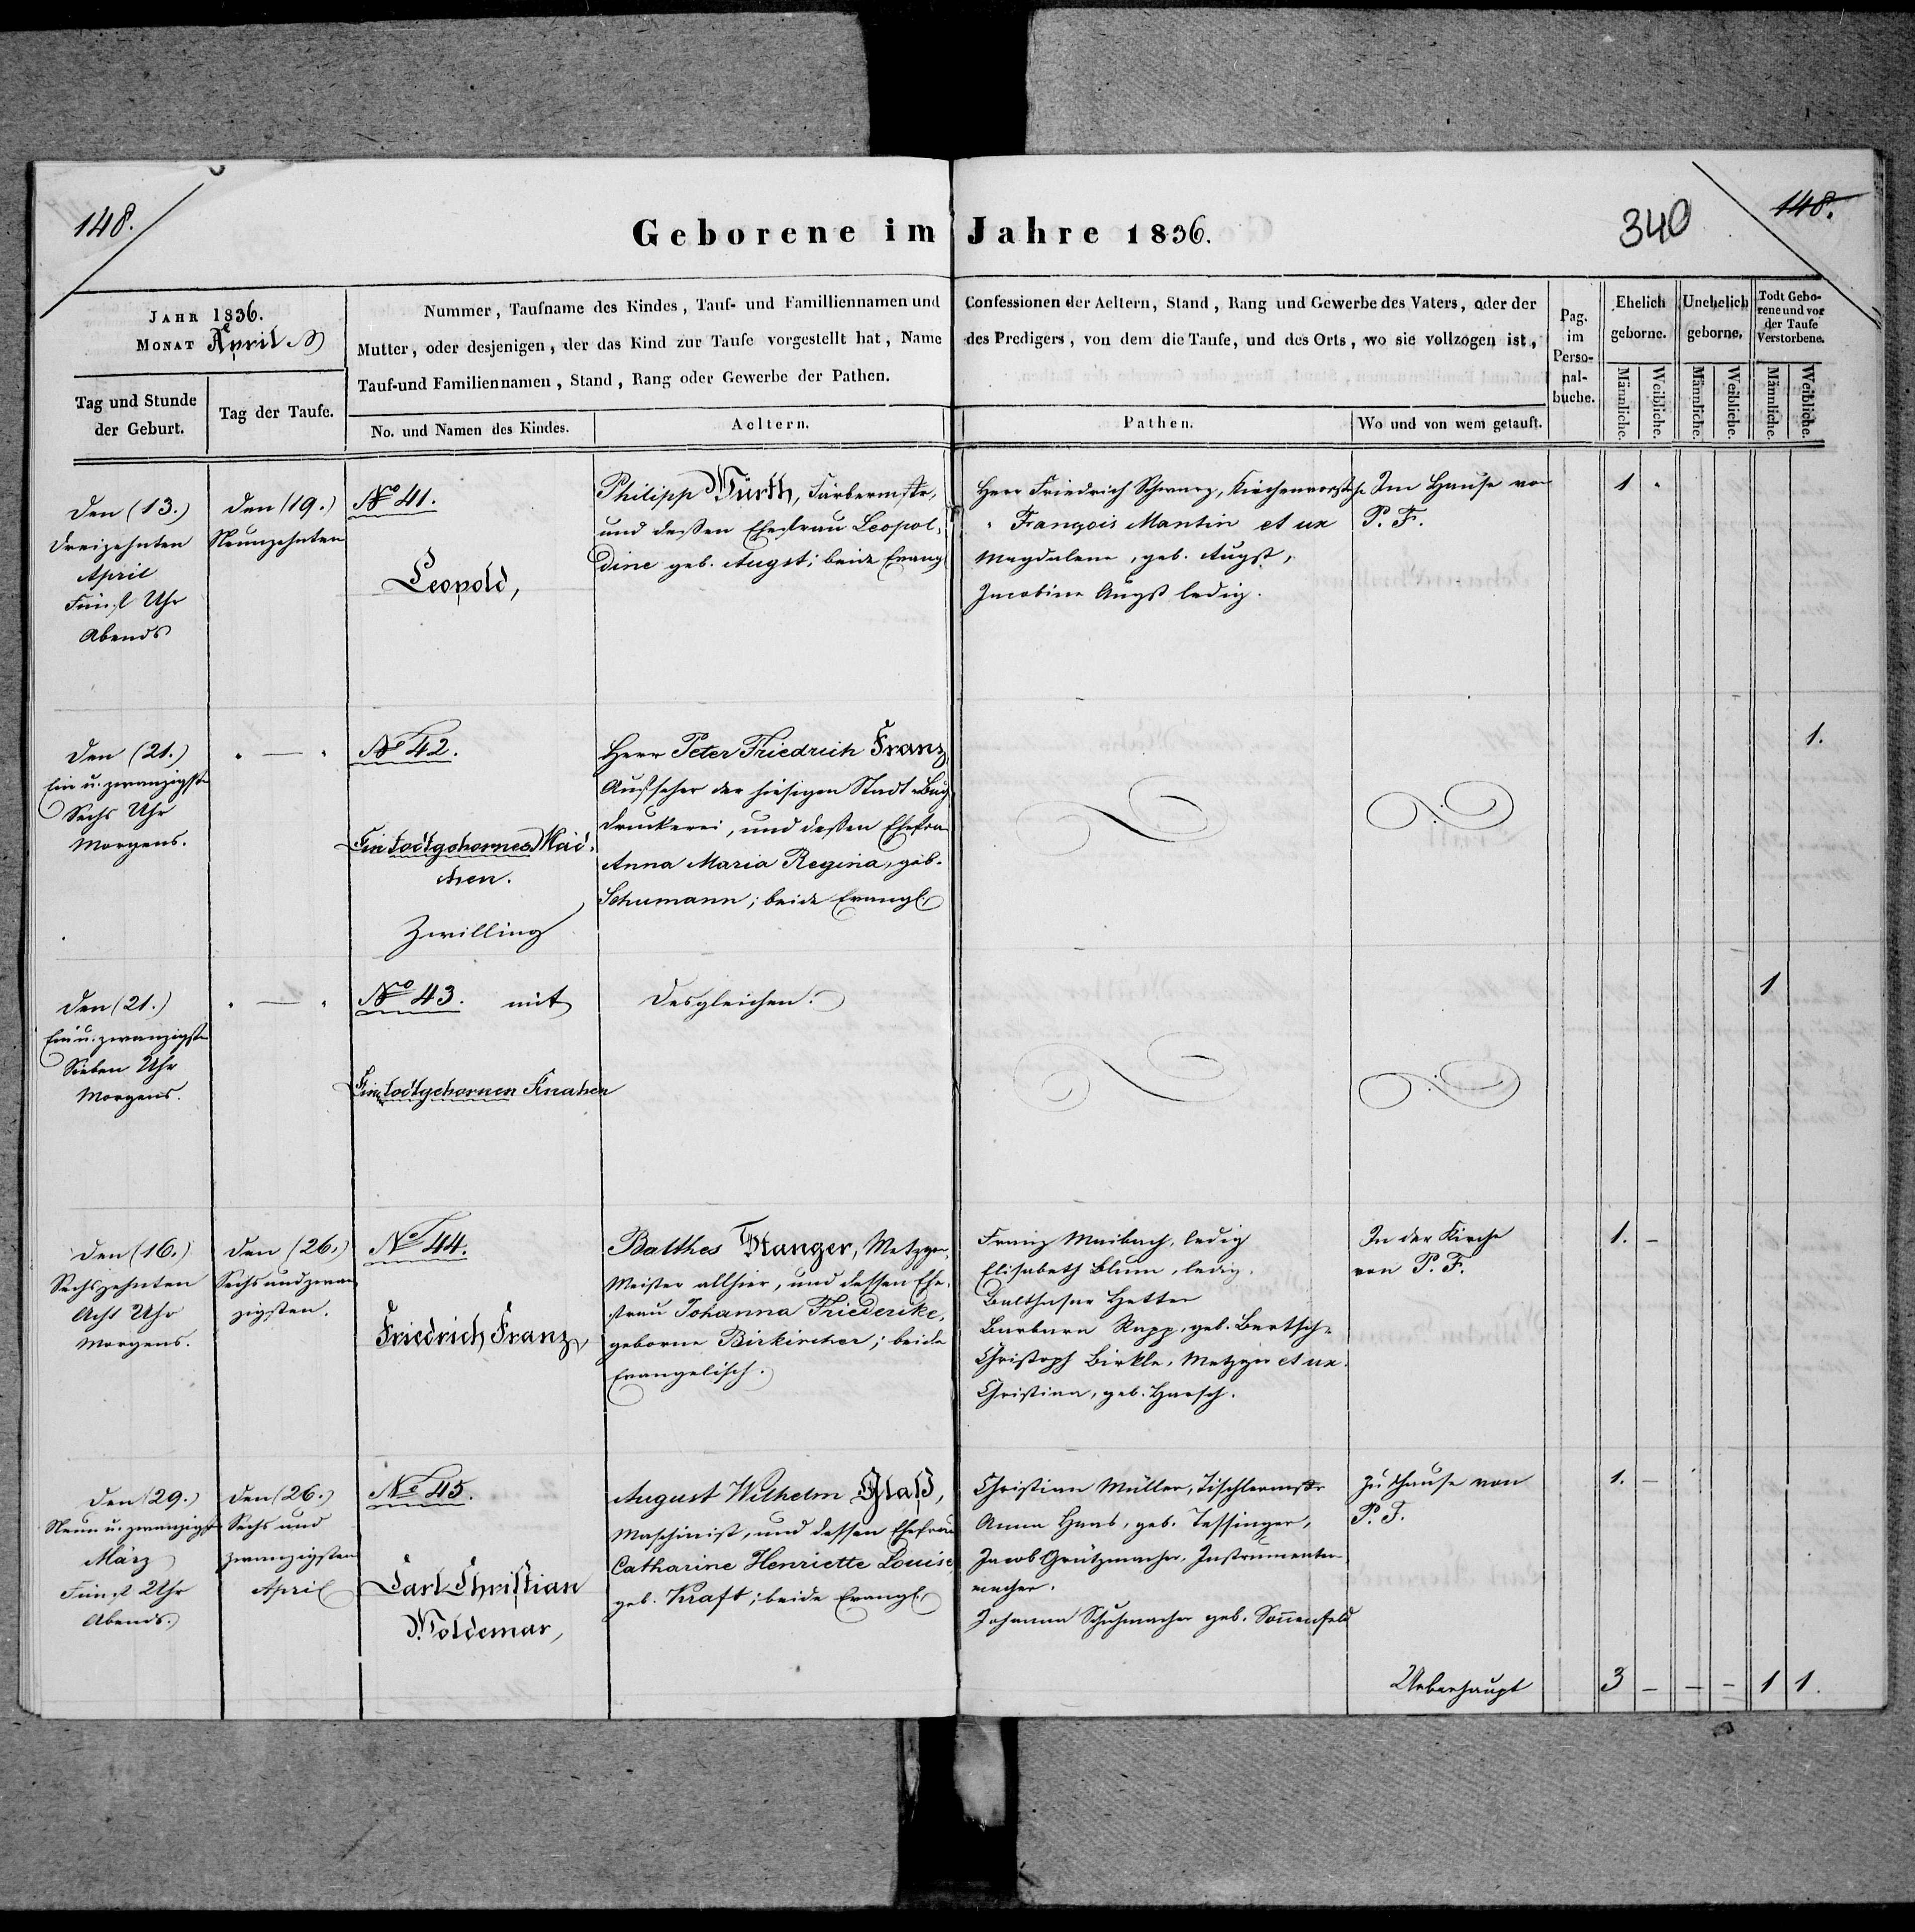 148.
Geborene im Jahre 1836.
340
148.
JAHR 1836.
MONAT April
Tag und Stunde
der Geburt.
Tag der Taufe.
Nummer, Taufname des Kindes, Tauf- und Familliennamen und
Mutter, oder desjenigen, der das Kind zur Taufe vorgestellt hat, Name
Tauf-und Familiennamen, Stand, Rang oder Gewerbe der Pathen.
No. und Namen des Kindes.
Aeltern.
Confessionen der Aeltern, Stand, Rang und Gewerbe des Vaters, oder der
des Predigers, von dem die Taufe, und des Orts, wo sie vollzogen ist,
Pathen.
Wo und von wem getauft.
Pag.
im
Perso-
nal-
buche.
Ehelich
geborne.
Unehelich
geborne.
Todt Gebo-
rene und vor
der Taufe
Verstorbene.
Männliche.
Weibliche.
Männliche.
Weibliche.
Männliche.
Weibliche.
Den (13.)
Dreizehnten
April
Fünf Uhr
Abends
Den (19.)
Neunzehnten
No 41.
Leopold,
Philipp Würth, Färbermstr,
und deßen Ehefrau Leopol-
dine geb. Augst; beide Evang
Herr Friedrich Schwarz, Kirchenvorsth.
" François Mantin et ux
Magdalena, geb. Augst,
Jacobine Augst ledig.
Im Hause von
P. F.
1 "
Den (21.)
Ein u. zwanzigste
Sechs Uhr
Morgens.
" — "
No 42.
Ein todtgebornes Mäd-
chen.
Zwilling
Herr Peter Friedrich Franz,
Aufseher der hiesigen Stadt-Buch
druckerei, und deßen Ehefrau
Anna Maria Regina, geb.
Schumann; beide Evangl.
1.
Den (21.)
Ein u. zwanzigste
Sieben Uhr
Morgens.
" — "
No 43. mit
Ein todtgebornen Knaben
Desgleichen.
1
Den (16.)
Sechszehnten
Acht Uhr
Morgens.
Den (26.)
Sechs und zwan
zigsten.
No 44.
Friedrich Franz,
Balthes Stanger, Metzger-
Meister allhier, und dessen Ehe-
frau Johanna Friederike,
geborne Birkircher; beide
Evangelisch.
Franz Maibach, ledig
Elisabeth Blum, ledig.
Balthasar Hetter
Barbara Rapp, geb. Bertsch-
Christoph Birkle, Metzger et ux.
Christina, geb. Harsch.
In der Kirche
von P. F.
1. –
Den (29.)
Neun u. zwanzigst
März
Fünf Uhr
Abends.
Den (26.)
Sechs und
zwanzigsten
April
No 45.
Carl Christian
Woldemar,
August Wilhelm Glaß,
Maschinist, und dessen Ehefrau
Catharine Henriette Louise,
geb. Kraft; beide Evangl.
Christian Müller, Tischlermstr
Anna Haas, geb. Tessinger,
Jacob Grützmacher, Instrumenten-
macher.
Johanna Schuhmacher geb. Sonnenfeld
Zu Hause von
P. F.
1. –
Ueberhaupt
3 – – – 1 1.